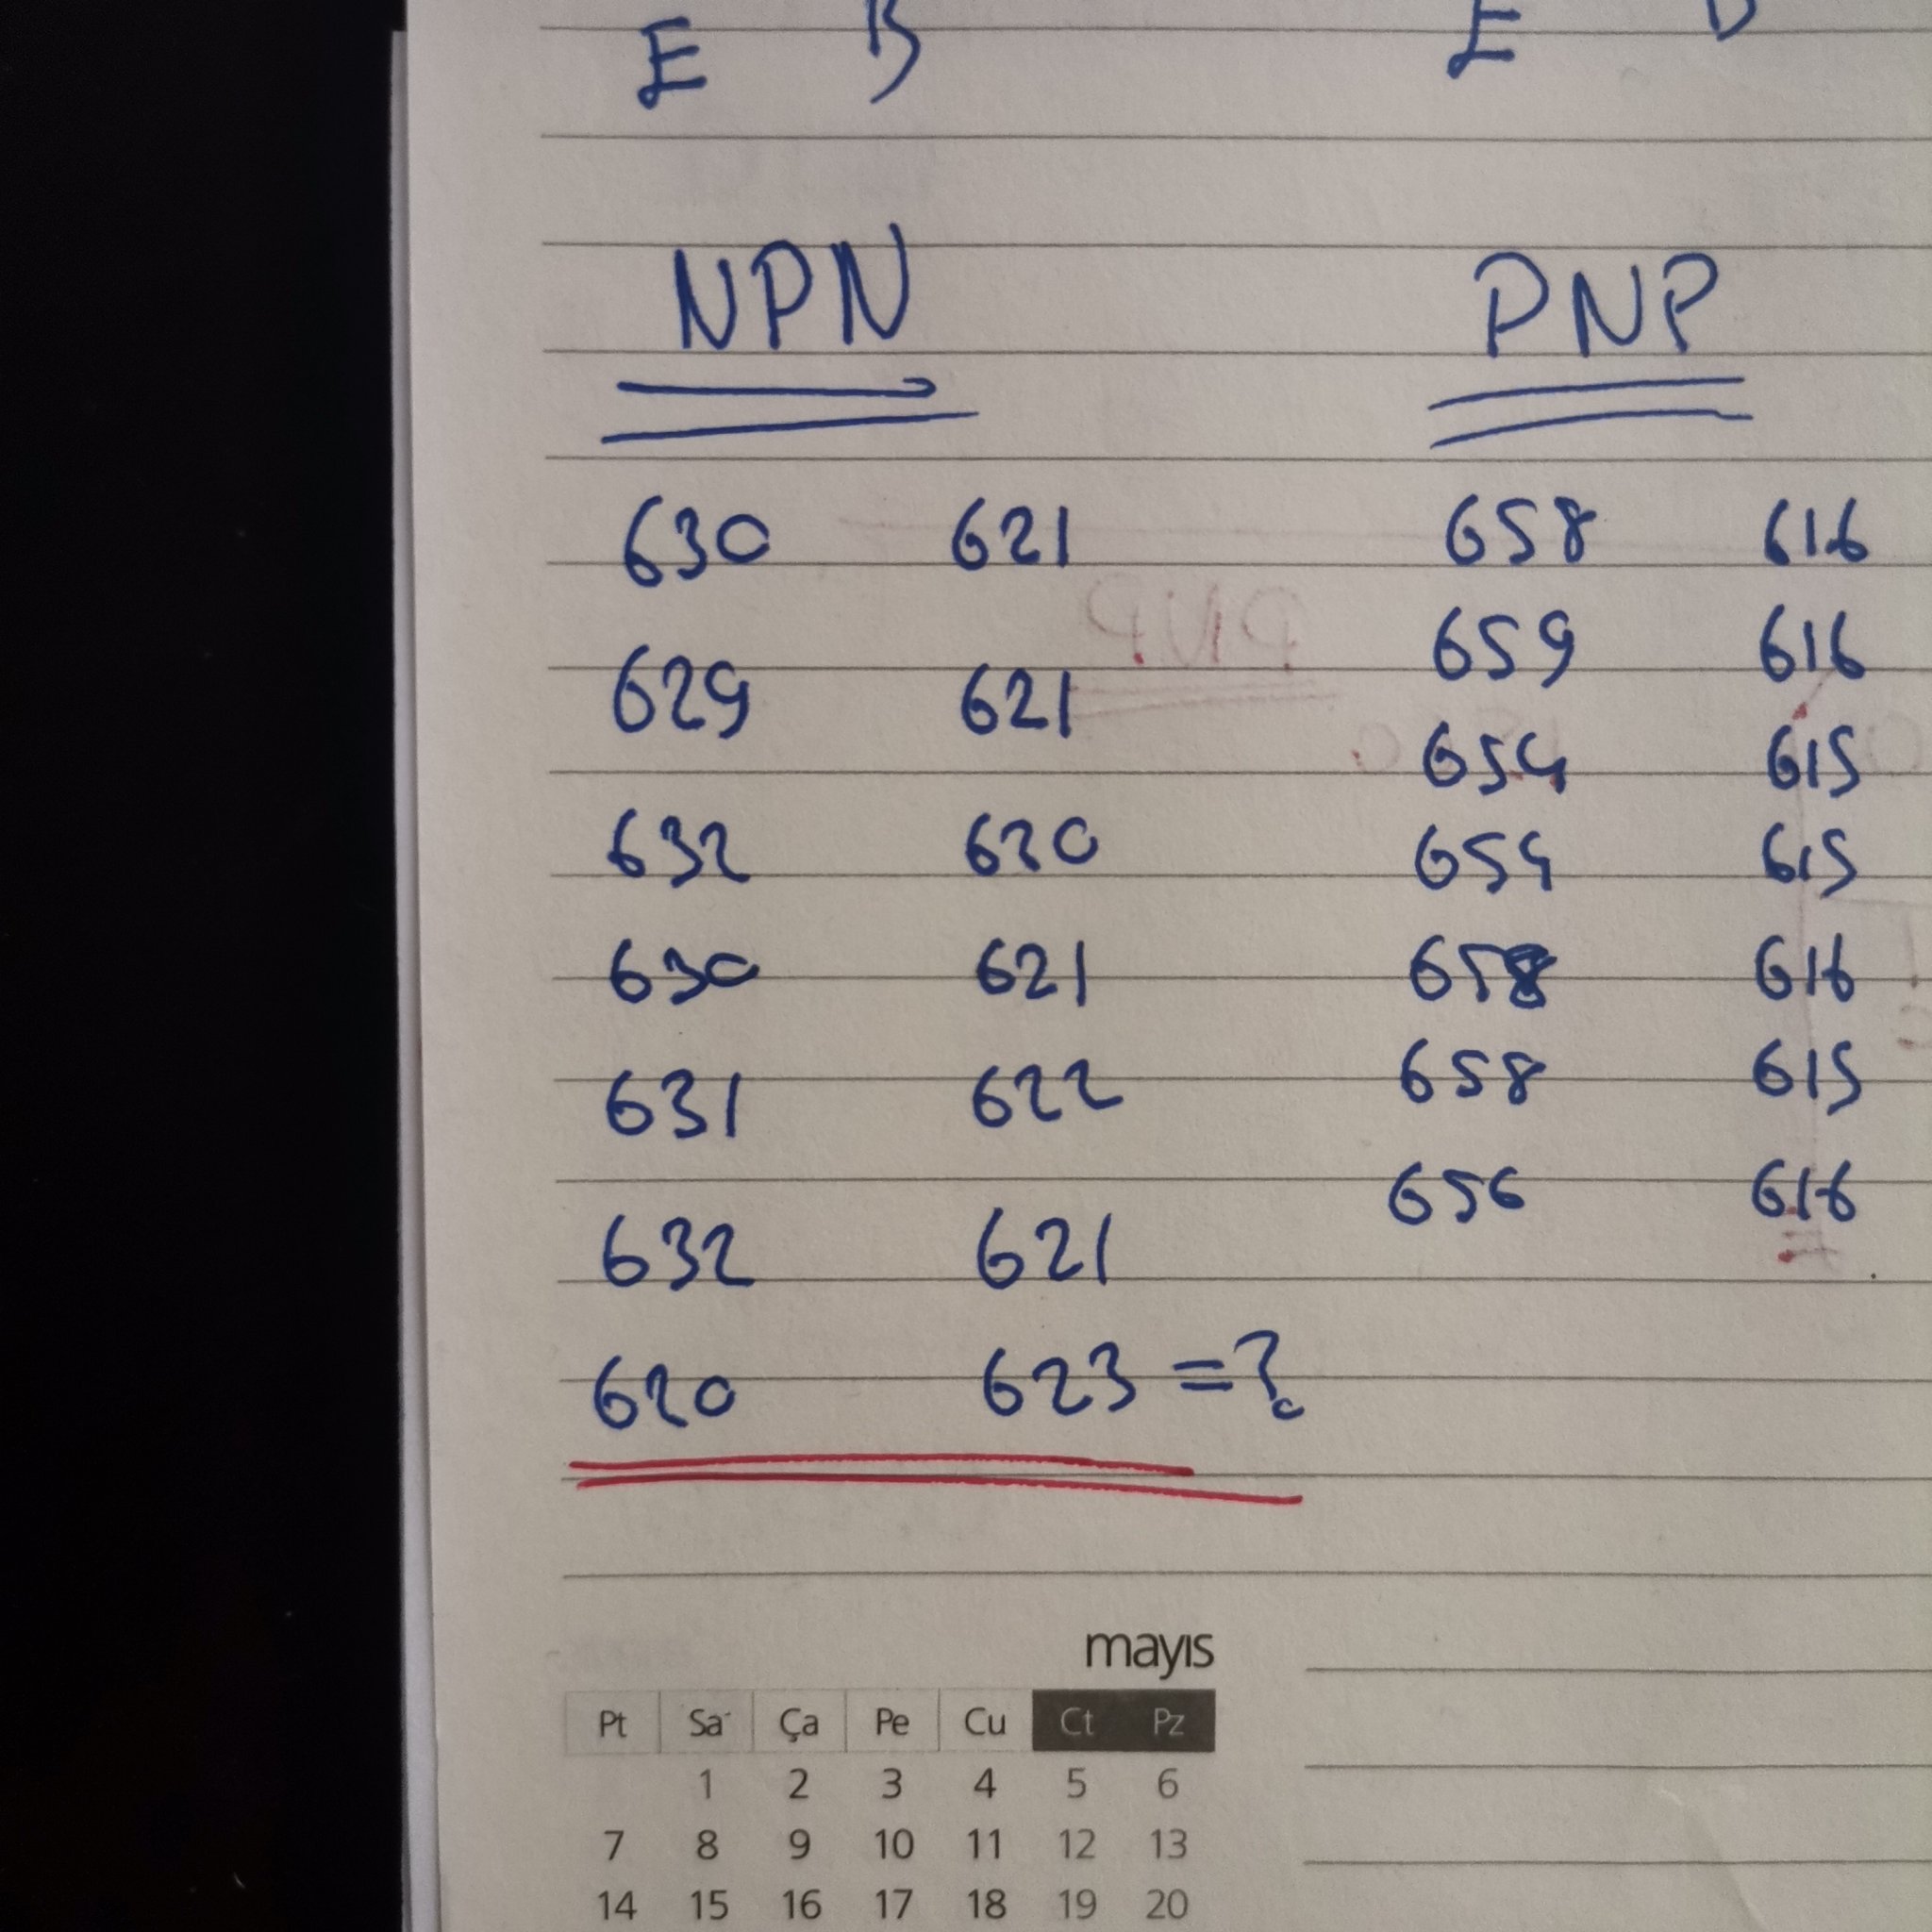 E B E
NPN PNP
630 621 658 616
629 621 659 616
632 620 654 615
630 621 654 615
631 622 658 616
632 621 658 615
620 623 =? 656 616
mayıs
Pt Sa Ça Pe Cu Ct Pz
1 2 3 4 5 6
7 8 9 10 11 12 13
14 15 16 17 18 19 20